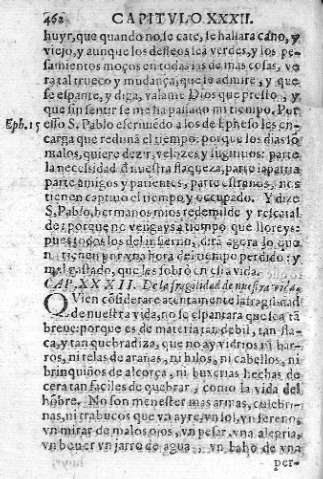 462 CAPITVLO XXXII.
huyr, que quando no se cate, se hallara cano, y
viejo, y aunque los desseos sea verdes, y los pe-
samientos moços en todas las de mas cosas, ve
ra tal trueco y mudança, que se admire, y que
se espante, y diga, valame Dios que presto, y
que sin sentir se me ha passado mi tiempo. Por
Eph. 15 esso S. Pablo escriuiedo a los de Epheso les en-
carga que redima el tiempo. porque los dias so
malos, quiere dezir, velozes y fugitiuos: parte
la necessidad d nuestra flaqueza, parte la patria
parte amigos y parientes, parte estraños, nos
tienen captiuo el tiempo y occupado. Y dize
S. Pablo, hermanos mios redemilde y rescatal
de: porque no vengays a tiempo que lloreys:
pues todos los del infierno, dira agora lo que
n tienen por vna hora del tiempo perdido: y
mal gastado, que les sobrò en esta vida.
CAP. XXXII. De la fragilidad de nuestra vida.
QVien cosiderare atentamente la fragilidad
de nuestra vida, no se espantara que sea ta
breue: porque es de materia tan debil, tan fla-
ca, y tan quebradiza, que no ay vidrios ni bar-
ros, ni telas de arañas, ni hilos, ni cabellos, ni
brinquiños de alcorça, ni buxerias hechas de
cera tan faciles de quebrar, como la vida del
hôbre. No son menester mas armas, culebri-
nas, ni trabucos que vn ayre, vn sol, vn sereno,
vn mirar de malos ojos, vn pesar, vna alegria,
vn beuer vn jarro de agua, vn baho de vna
per-